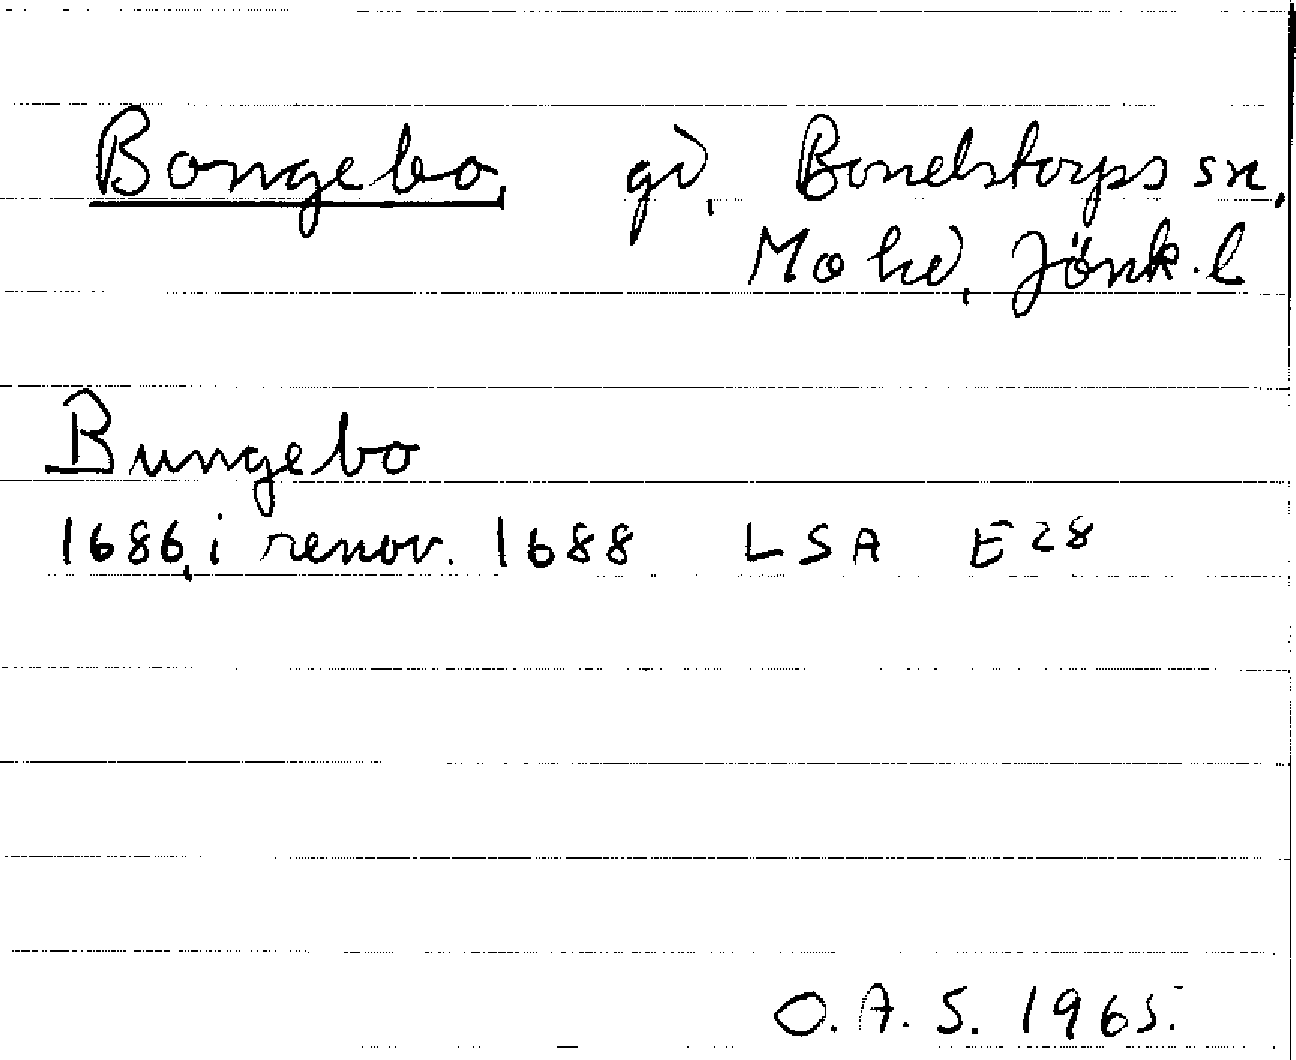 Bongebo, gd, Bondstorps sn,
Mo hd, Jönk. l
Bungebo
1686, i renov. 1688 LSA E28
O. A. S. 1965.